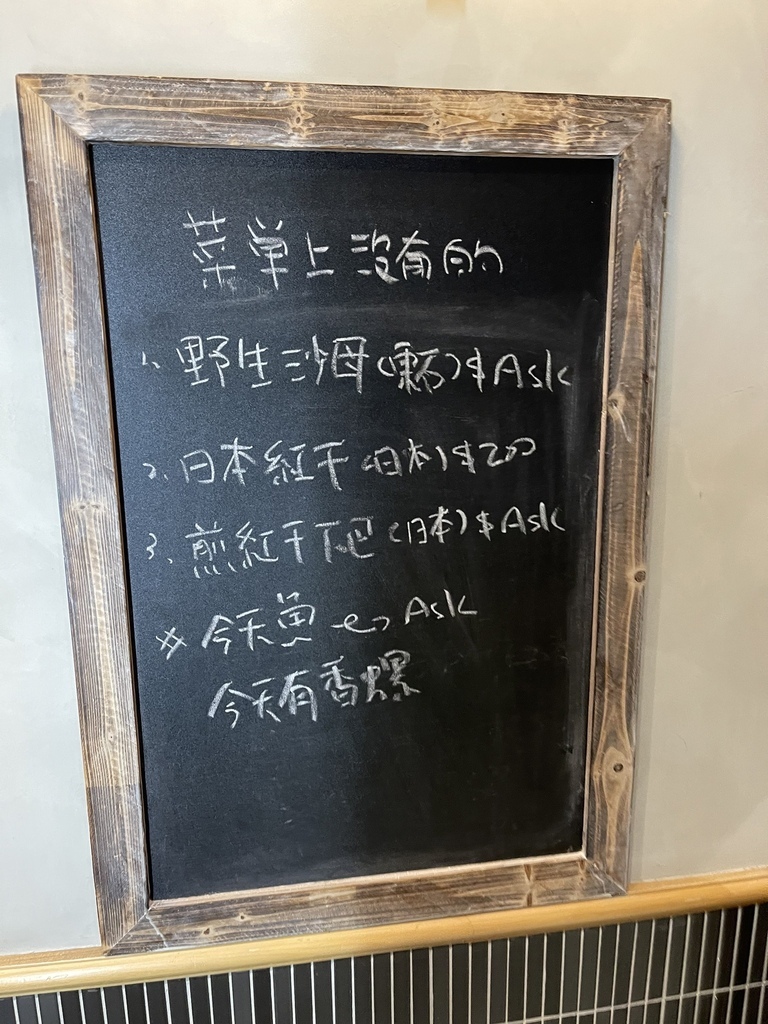 菜单上没有的
1. 野生沙母 ( ) $ Ask
2. 日本紅干 (日本) $200
3. 煎紅干下巴 (日本) $ Ask
※ 今天魚 → Ask
今天有香螺